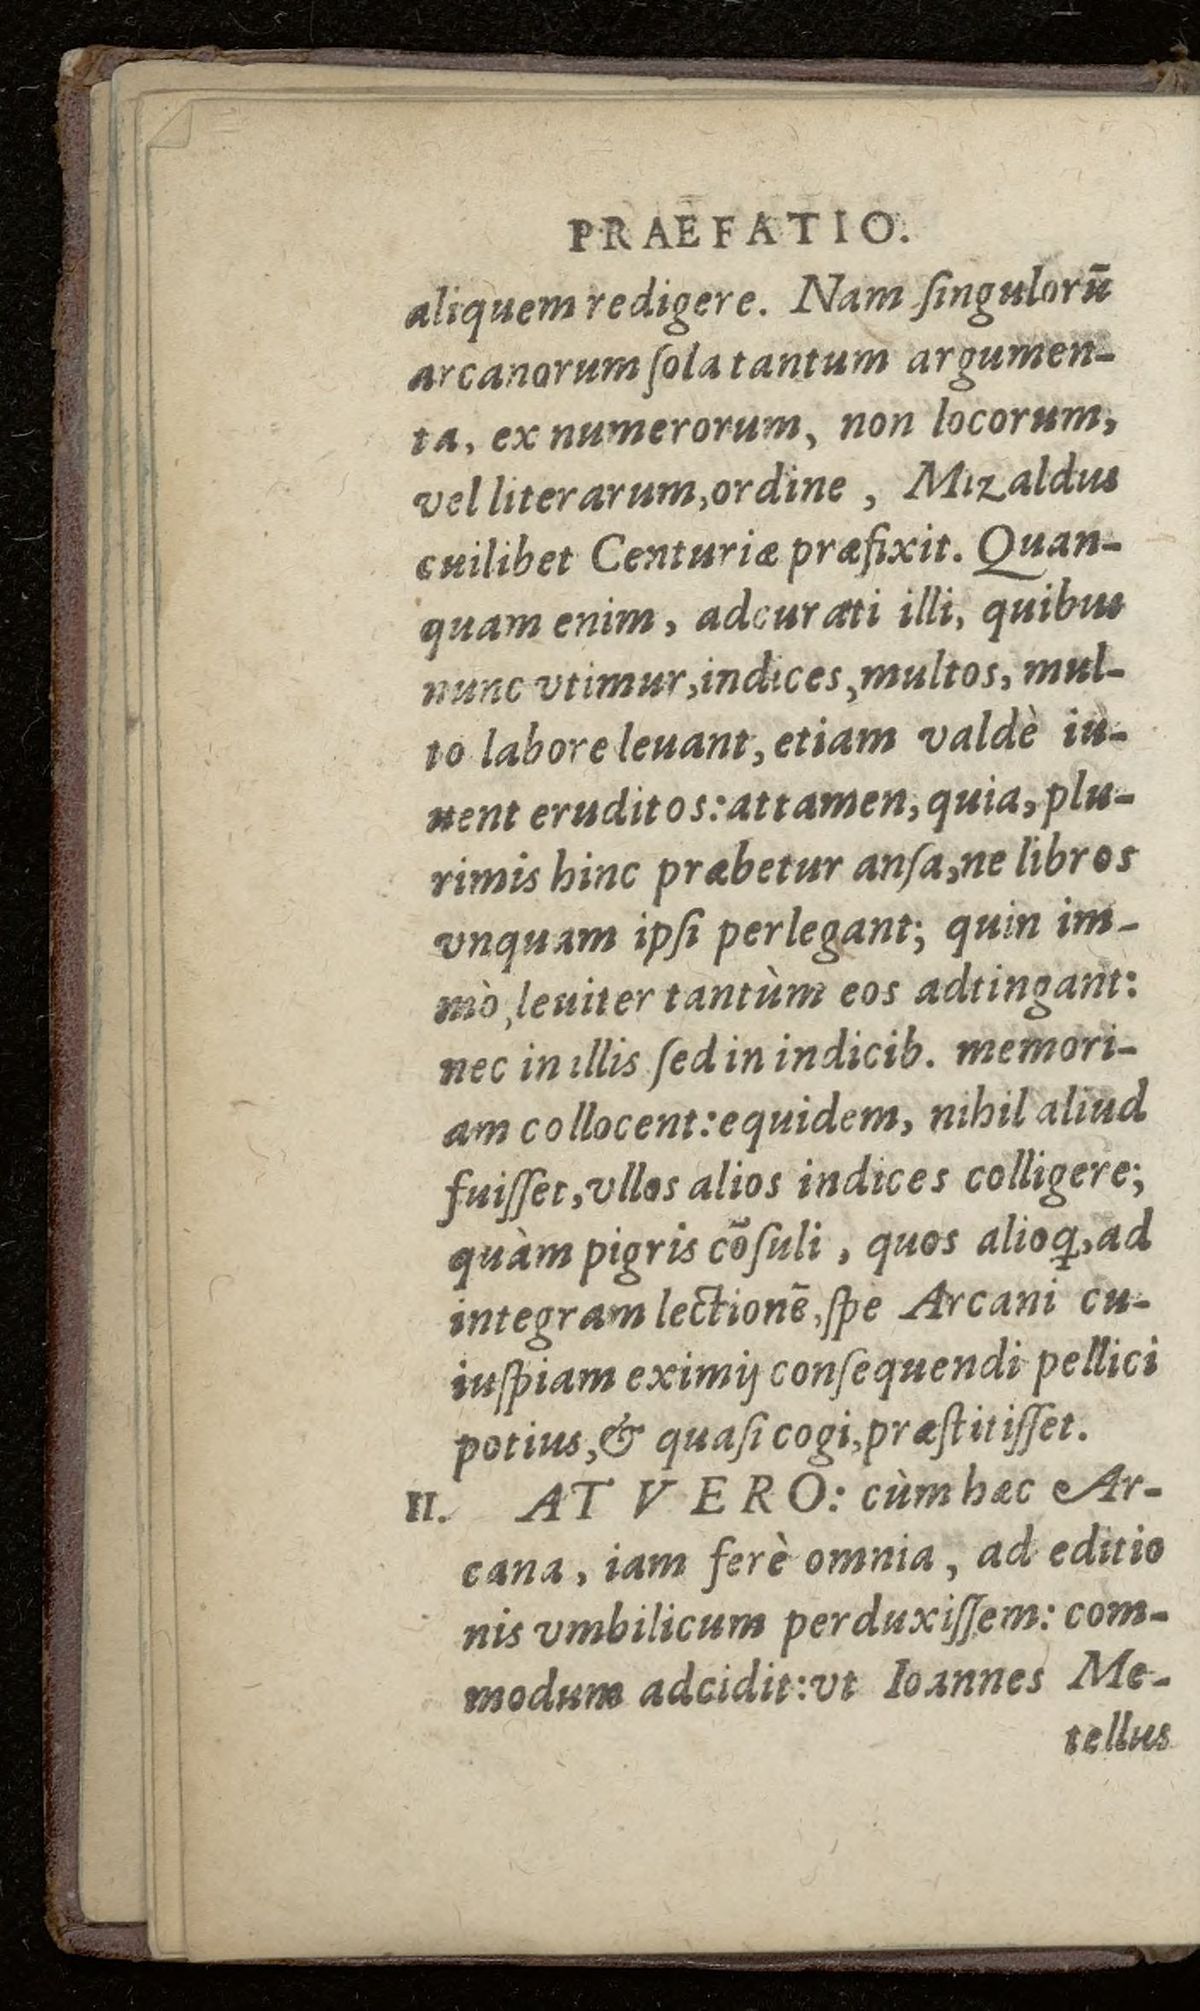 PRAEFATIO.
aliquem redigere. Nam ſingulorū
arcanorum ſola tantum argumen-
ta, ex numerorum, non locorum,
vel literarum, ordine, Mizaldus
cuilibet Centuriæ præfixit. Quan-
quam enim, adcurati illi, quibus
nunc vtimur, indices, multos, mul-
to labore leuant, etiam valdè iu-
uent eruditos: attamen, quia, plu-
rimis hinc præbetur anſa, ne libros
vnquam ipſi perlegant; quin im-
mò, leuiter tantùm eos adtingant:
nec in illis ſed in indicib. memori-
am collocent: equidem, nihil aliud
fuiſſet, vllos alios indices colligere;
quàm pigris cōſuli, quos alioq̨, ad
integram lectionē, ſpe Arcani cu-
iuſpiam eximij conſequendi pellici
potius, & quaſi cogi, præſtitiſſet.
II. AT VERO: cùm hæc Ar-
cana, iam ferè omnia, ad editio
nis vmbilicum perduxiſſem: com-
modum adcidit: vt Ioannes Me-
tellus